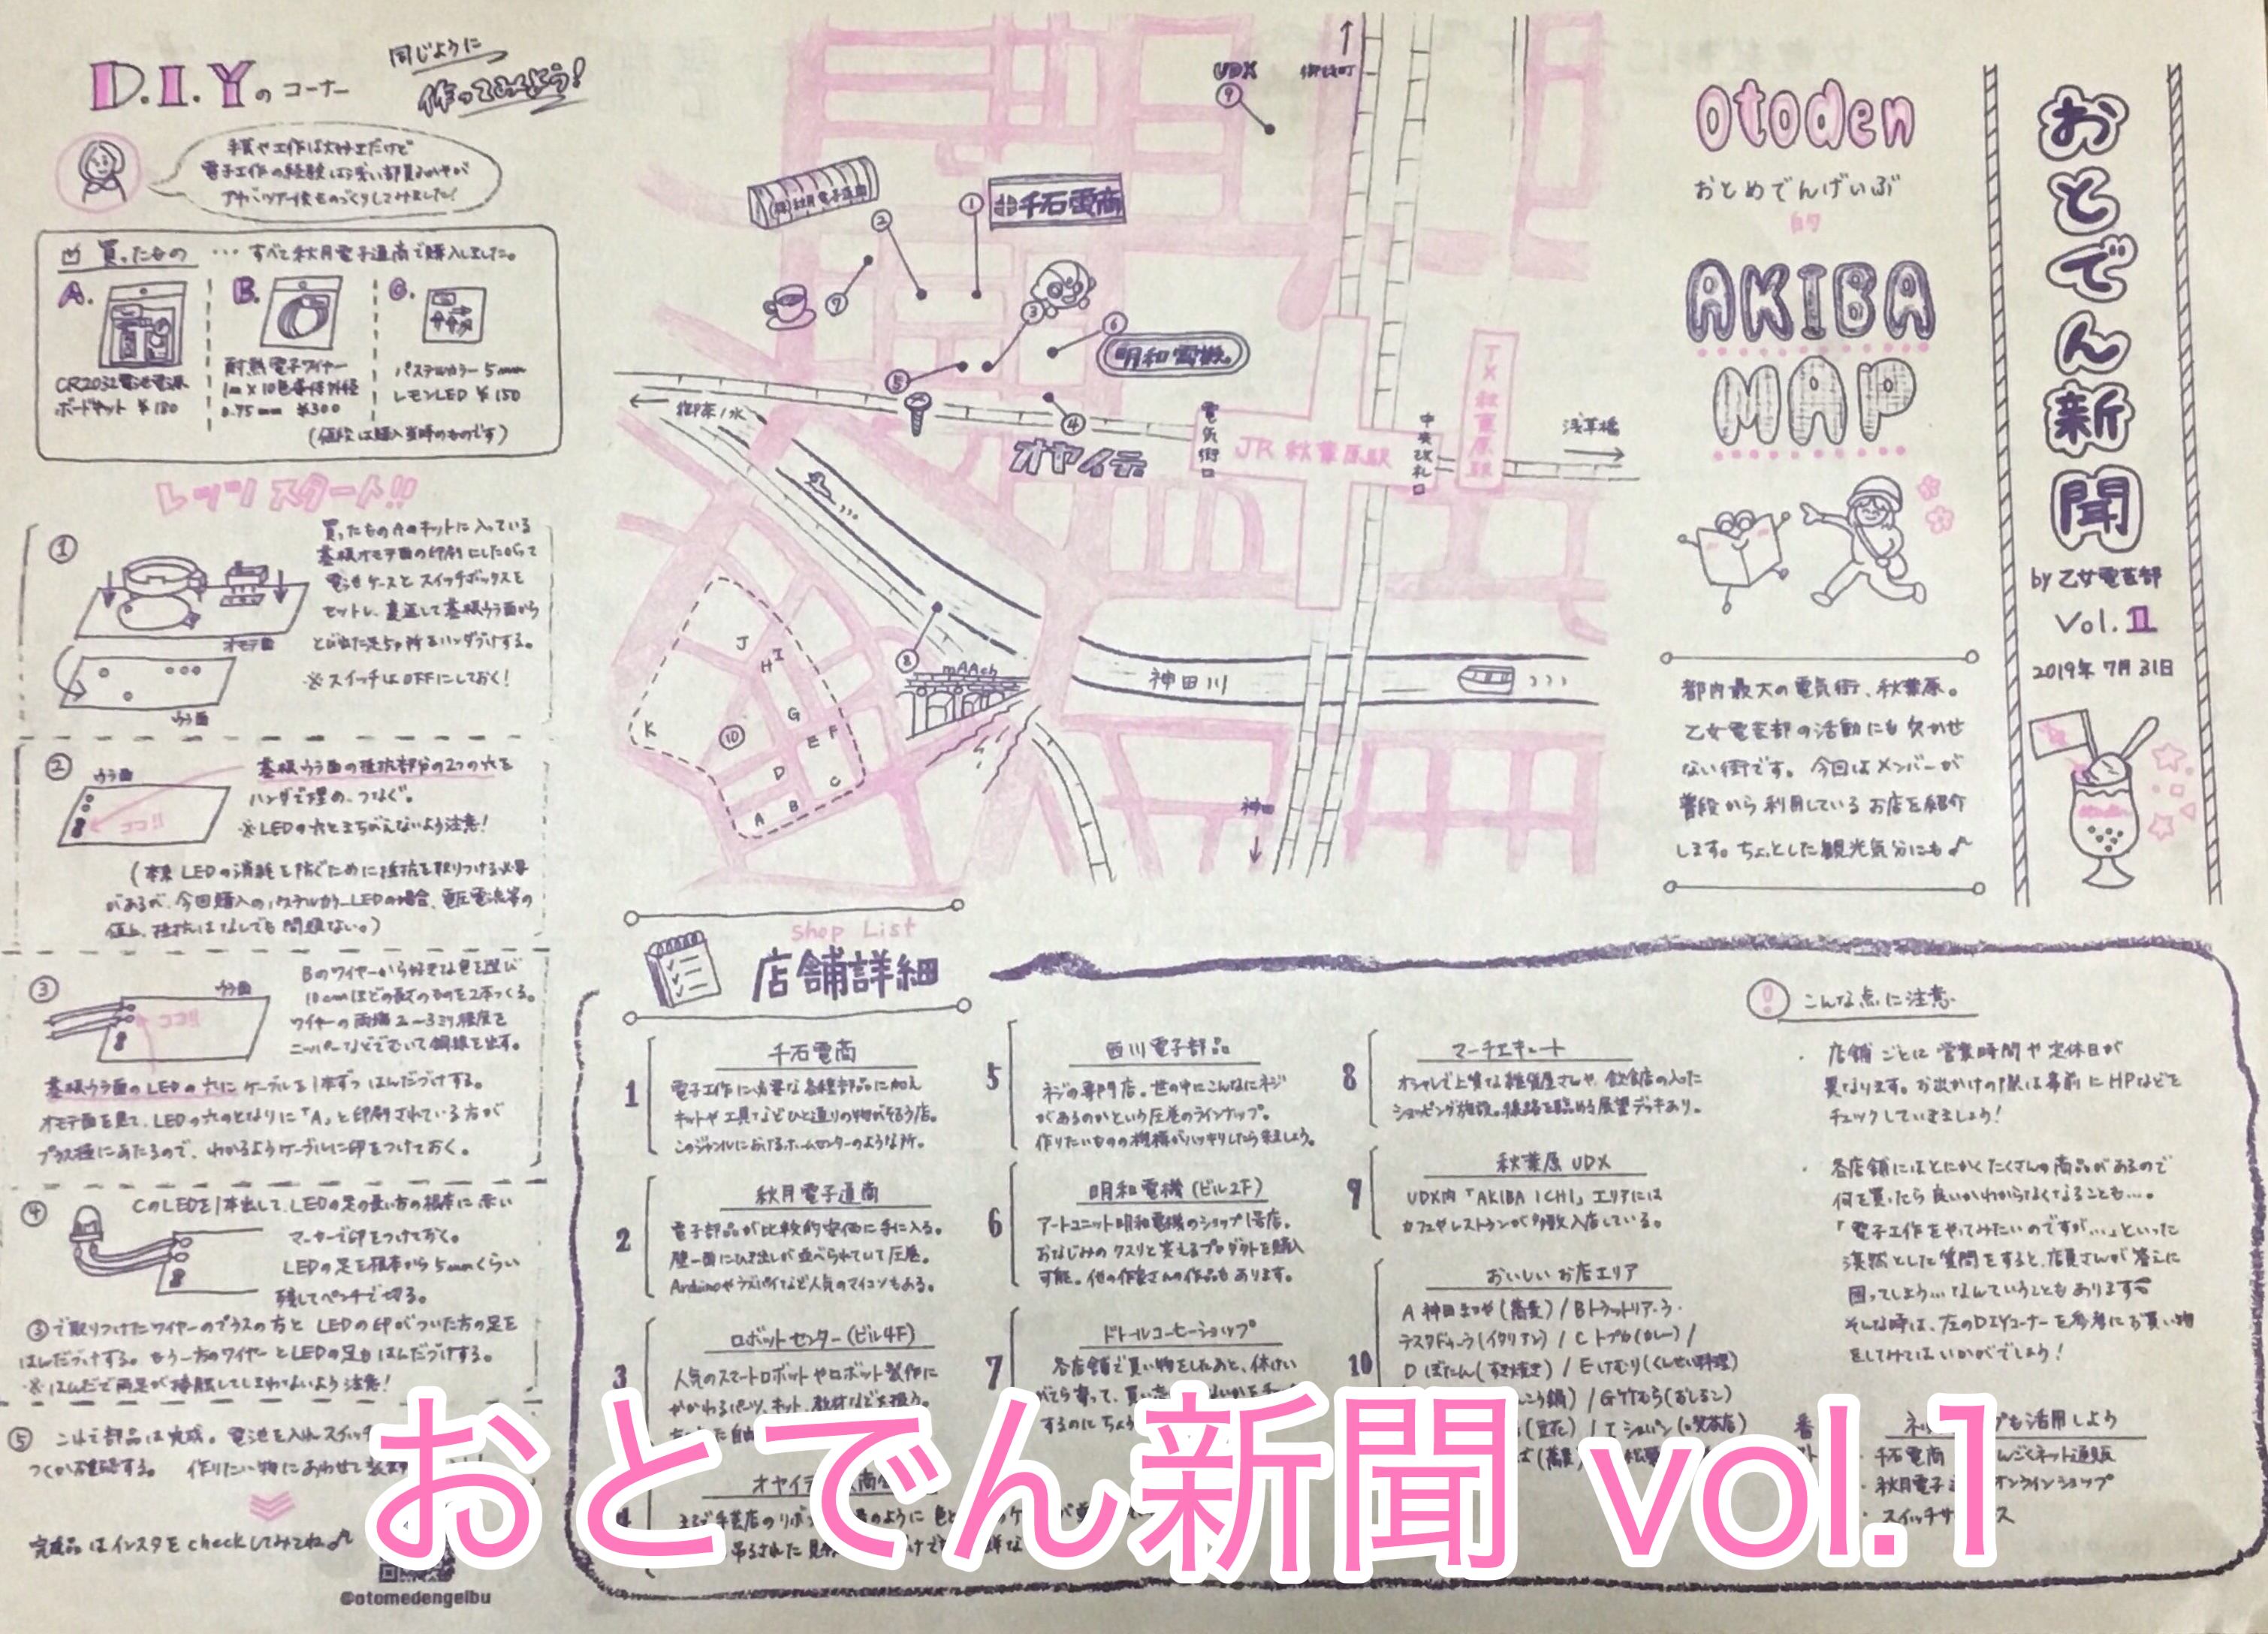 おとでん新聞
by 乙女電芸部
Vol.1
2019年 7月 31日
otoden
おとめでんげいぶ
的
AKIBA
MAP
都内最大の電気街、秋葉原。
乙女電芸部の活動にも欠かせ
ない街です。今回はメンバーが
普段から利用しているお店を紹介
します。ちょっとした観光気分にも♪
D.I.Yのコーナー
同じように
作ってみよう!
電子工作の経験は浅い部員
買ったもの ･･･すべて秋月電子通商で購入しました。
A.
CR2032電池電源
ボードキット ¥180
B.
耐熱電子ワイヤー
1m×10色 外径
0.75mm ¥300
C.
パステルカラー 5mm
レモンLED ¥150
(値段は購入当時のものです)
レッツ スタート!!
①
買ったものAのキットに入っている
基板オモテ面の印刷にしたがって
電池ケースとスイッチボックスを
セットし、裏返して基板ウラ面から
とび出た足5ヶ所をハンダづけする。
※スイッチはOFFにしておく!
オモテ面
ウラ面
②
ウラ面
ココ!!
基板ウラ面の抵抗部分の2つの穴を
ハンダで埋め、つなぐ。
※LEDの穴とまちがえないよう注意!
(本来LEDの消耗を防ぐために抵抗を取りつける必要
があるが、今回購入のパステルカラーLEDの場合、電圧電流等の
値上、抵抗はなしでも問題ない。)
③
ウラ面
ココ!!
Bのワイヤーから好きな色を選び
10cmほどの長さのものを2本つくる。
ワイヤーの両端2〜3ミリ程度を
ニッパーなどでむいて銅線を出す。
基板ウラ面のLEDの穴にケーブルを1本ずつはんだづけする。
オモテ面を見て、LEDの穴のとなりに「A」と印刷されている方が
プラス極にあたるので、わかるようケーブルに印をつけておく。
④
CのLEDを1本出して、LEDの足の長い方の根本に赤い
マーカーで印をつけておく。
LEDの足を根本から5mmくらい
残してペンチで切る。
③で取りつけたワイヤーのプラスの方とLEDの印がついた方の足を
はんだづけする。もう一方のワイヤーとLEDの足もはんだづけする。
※はんだで両足が接触してしまわないよう注意!
⑤
これで部品は完成。電池を入れスイッチ
つくか確認する。 作りたい物にあわせて
完成品はインスタをcheckしてみてね♪
@otomedengeibu
UDX
⑨
御徒町
(株)秋月電子通商
②
①
千石電商
⑦
③
⑥
明和電機
⑤
④
オヤイデ
御茶ノ水
電気街口
JR 秋葉原駅
中央改札口
TX 秋葉原駅
浅草橋
⑧
mAAch
神田川
神田
J
H I
K
⑩
G
E F
D
C
B
A
Shop List
店舗詳細
1
千石電商
電子工作に必要な各種部品に加え
キットや工具などひと通りの物がそろう店。
このジャンルにおけるホームセンターのような所。
2
秋月電子通商
電子部品が比較的安価に手に入る。
壁一面にひき出しが並べられていて圧巻。
Arduinoやラズパイなど人気のマイコンもある。
3
ロボットセンター(ビル4F)
人気のスマートロボットやロボット製作に
かかわるパーツ、キット、教材などを扱う。
4
オヤイデ
まるで手芸店のリボン
5
西川電子部品
ネジの専門店。世の中にこんなにネジ
があるのかという圧巻のラインナップ。
作りたいものの機構がハッキリしたら来ましょう。
6
明和電機(ビル2F)
アートユニット明和電機のショップ1号店。
おなじみのクスリと笑えるプロダクトを購入
可能。他の作家さんの作品もあります。
7
ドトールコーヒーショップ
各店舗で買い物をしたあと、休けい
がてら寄って、
するのにちょう
8
マーチエキュート
オシャレで上質な雑貨屋さんや、飲食店の入った
ショッピング施設。線路を臨める展望デッキあり。
9
秋葉原 UDX
UDX内「AKIBA ICHI」エリアには
カフェやレストランが多数入店している。
10
おいしいお店エリア
A 神田まつや(蕎麦)/Bトラットリア・ラ・
テスタドゥーラ(イタリアン)/Cトプカ(カレー)/
Dぼたん(すき焼き)/Eけむり(くんせい料理)
こう鍋)/G竹むら(おしるこ)
(豆花)/Iショパン(喫茶店)
こんな点に注意
・店舗ごとに営業時間や定休日が
異なります。お出かけの際は事前にHPなどを
チェックしていきましょう!
・各店舗にはとにかくたくさんの商品があるので
何を買ったら良いかわからなくなることも…。
「電子工作をやってみたいのですが…」といった
漠然とした質問をすると、店員さんが答えに
困ってしまう…なんていうこともあります
そんな時は、左のDIYコーナーを参考にお買い物
をしてみてはいかがでしょう!
も活用しよう
・千石電商 せんごくネット通販
・秋月電子 オンラインショップ
・スイッチサイエンス
おとでん新聞 vol.1